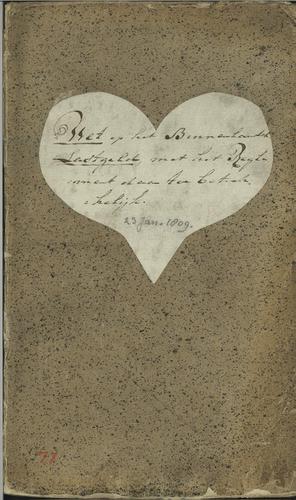 Wet op het Binnenlandsch
Lastgeld, met het Regle-
ment daar toe betrek-
kelijk.
23 Jan. 1809.
77